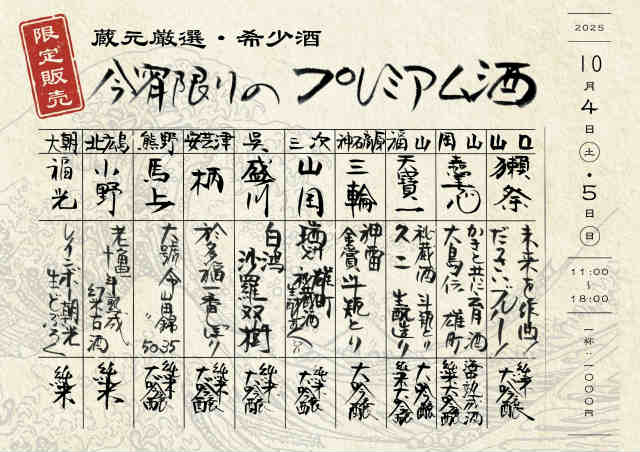 限定販売
蔵元厳選・希少酒
今宵限りの プレミアム酒
2025
10月4日(土)・5日(日)
11:00〜18:00
一杯:一〇〇〇円
山口
獺祭
未来を作曲
だっさいブルー
純米
大吟醸
岡山
かきと共に
大島伝 雄町
純米大吟醸
福山
天寶一
秘蔵酒 斗瓶とり
久二 生酛造り
大吟醸
純米大吟醸
三輪
神雷
金賞 斗瓶とり
大吟醸
三次
山岡
雄町
純米
大吟醸
呉
盛川
白鴻
沙羅双樹
純米
大吟醸
安芸津
柄
於多福一番しぼり
純米
大吟醸
熊野
馬上
大號令山田錦
50 35
純米
大吟醸
北広島
小野
老亀
十年熟成
純米古酒
純米
大朝
福光
レインボー朝光
生どぶろく
純米